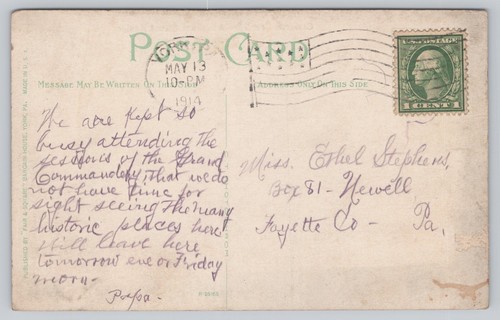 POST CARD
YORK
MAY 13
10-PM
1914
MESSAGE MAY BE WRITTEN ON THIS SIDE
ADDRESS ONLY ON THIS SIDE
1 CENT 1
We are Kept so
busy attending the
sessions of the Grand
Commandery, that we do
not have time for
sight seeing the many
historic places here
Will leave here
tomorrow eve or Friday
morn-
Popsa.
Miss. Ethel Stephens,
Box 81- Newell
Fayette Co- Pa,
MADE IN U.S.A.